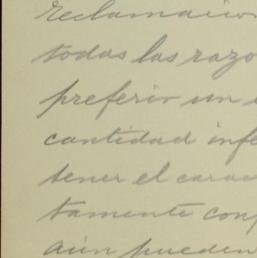 reclamacion
todas las razo
preferir un
cantidad infe
tener el carac
tamente conf
aún pueden